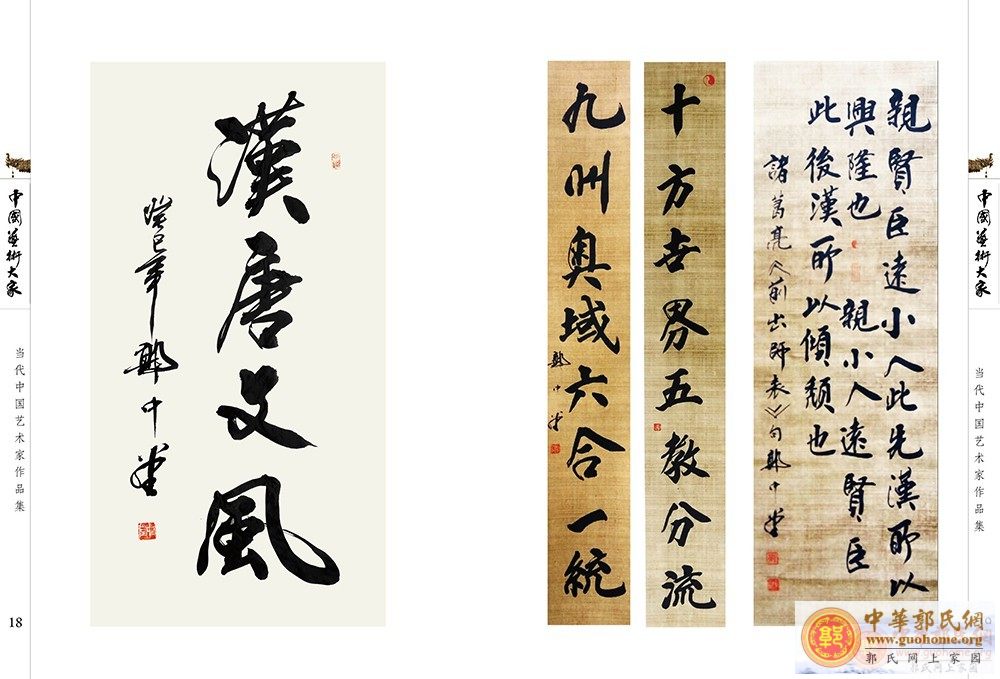 中國藝術大家
当代中国艺术家作品集
18
漢唐文風
癸巳年 郭中
親賢臣遠小人此先漢所以
興隆也 親小人遠賢臣
此後漢所以傾頹也
諸葛亮《前出師表》句 郭中
十方世界五教分流
九州奧域六合一統
郭中
中國藝術大家
当代中国艺术家作品集
中華郭氏網
www.guohome.org
郭氏网上家园